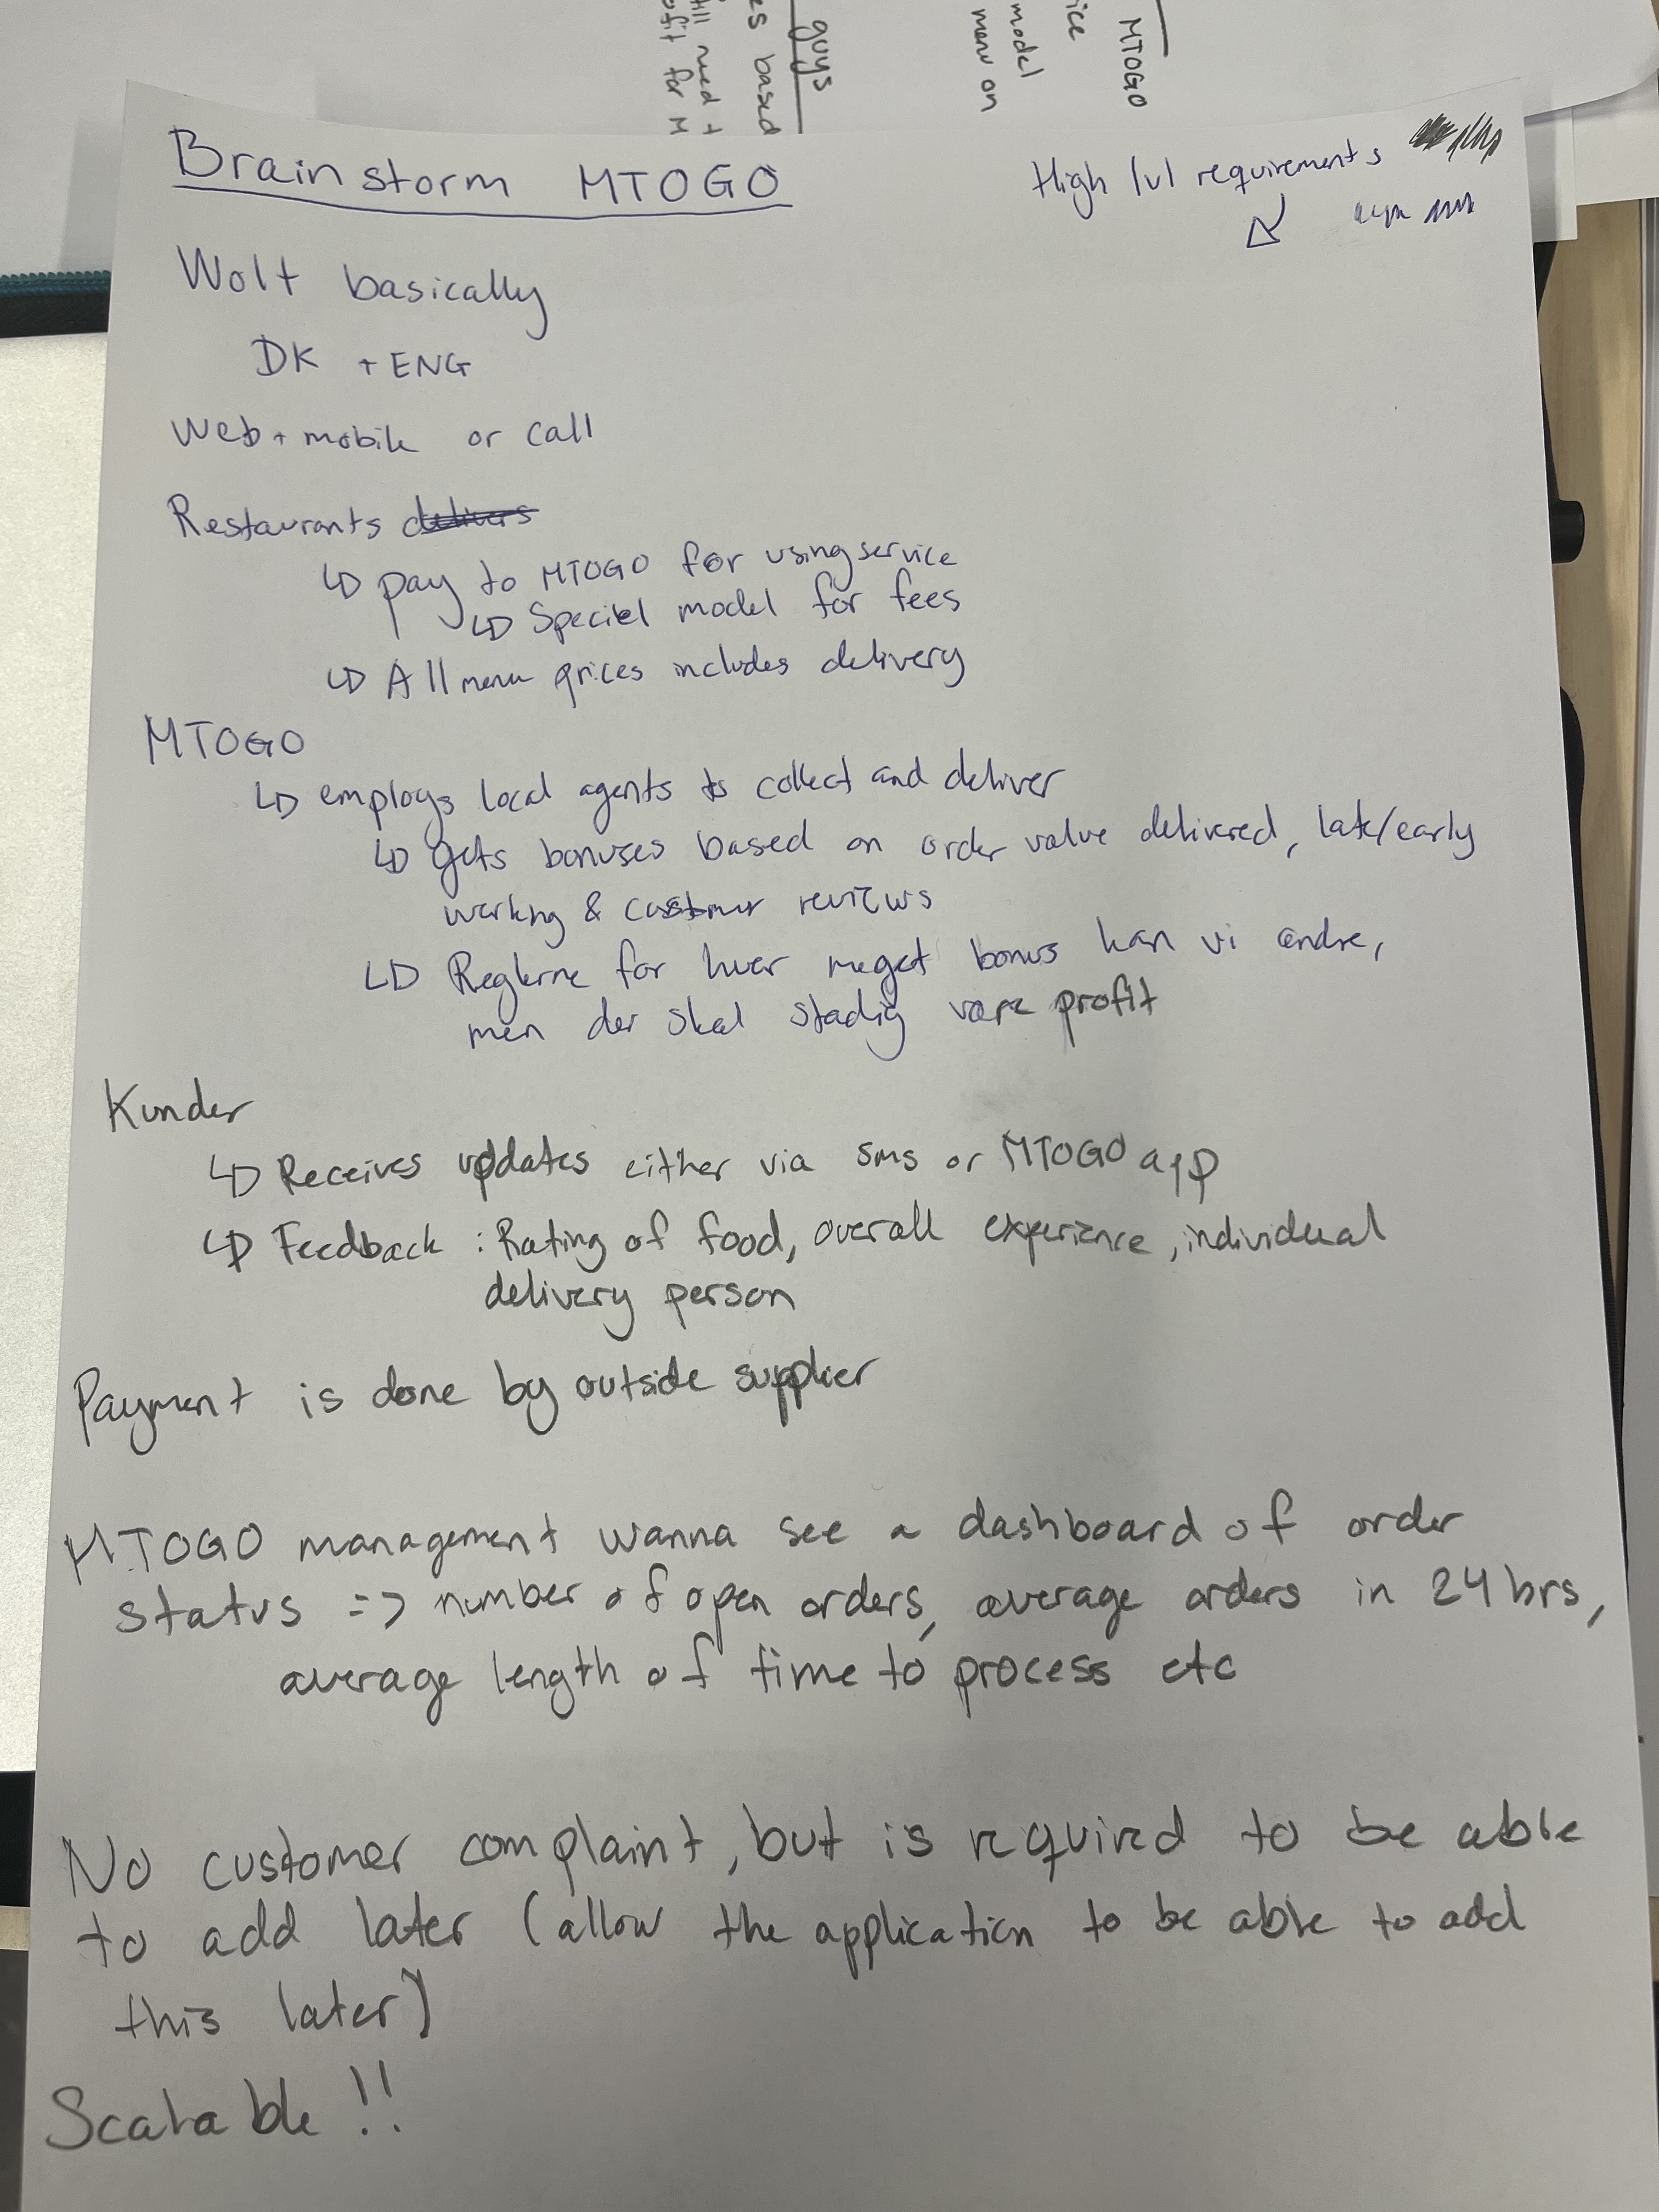 guys
es based
till need t
ofit for M
MTOGO
ice
model
menu on
Brainstorm MTOGO
High lvl requirements
Wolt basically
DK + ENG
Web + mobile or call
Restaurants delivers
↳ pay to MTOGO for using service
↳ Speciel model for fees
↳ All menu prices includes delivery
MTOGO
↳ employs local agents to collect and deliver
↳ gets bonuses based on order value delivered, late/early
working & customer reviews
↳ Reglerne for hver meget bonus kan vi ændre,
men der skal stadig være profit
Kunder
↳ Receives updates either via sms or MTOGO app
↳ Feedback : Rating of food, overall experience, individual
delivery person
Payment is done by outside supplier
MTOGO management wanna see a dashboard of order
status => number of open orders, average orders in 24 hrs,
average length of time to process etc
No customer complaint, but is required to be able
to add later (allow the application to be able to add
this later)
Scalable !!